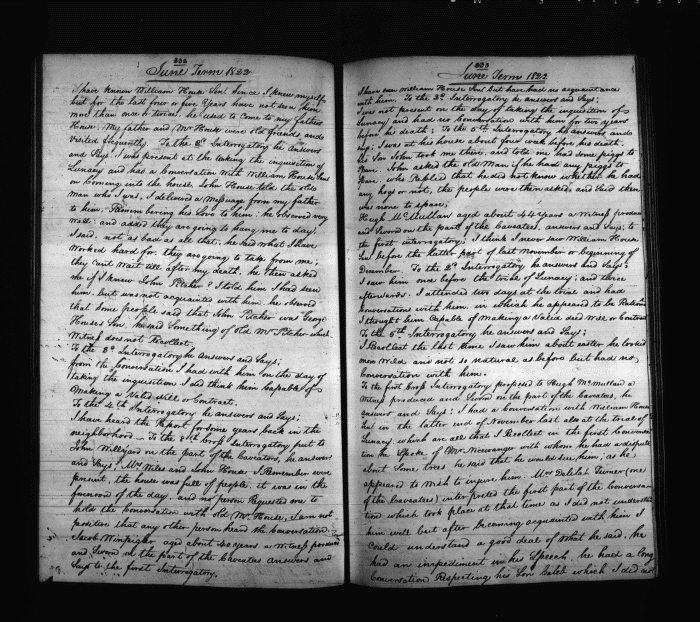 222
June Term 1822
I have known William House Senr Since I knew myself
but for the last four or five Years have not seen him
more than once or twice. he used to come to my fathers
House. My father and Mr House were old friends, and
visited frequently. To the 2d Interrogatory he answers
and Says; I was present at the taking the inquisition of
Lunacy and has a Conversation with William House Senr
on Coming into the house. John House told the old
man who I was, I delivered a Message from my father
to him. Remembering his Love to him; he observed very
well; and added they are going to hang me to day;
I said, not as bad as all that, he said what I have
Worked hard for they are going to take from me;
they can't Wait till after my death. he then asked
me if I knew John Pitcher? I told him I had seen
him, but was not acquainted with him. he observed
that some people said that John Pitcher was George
House's Son. he said Something of old Mr Pitcher which
Witness does not Recollect.
To the 3d Interrogatory he answers and Says;
from the Conversation I had with him on the day of
taking the inquisition I did think him Capable of
Making a Valid Will or Contract.
To the 4th Interrogatory he answers and Says;
I have heard the Report for some years back in the
neighborhood. To the cross Interrogatory put to
John Willyard on the part of the Caveators, he answers
and Says; Mrs Wiles and John House I Remember were
present, the house was full of people, it was in the
forenoon of the day, and no person Requested me to
hold the Conversation with old Mr House, I am not
positive that any other person heard the Conversation.
Jacob aged about years a Witness produced
and Sworn on the part of the Caveatees answers and
Says to the first Interrogatory,
223
June Term 1822
I have seen William House Senr but have had no acquaintance
with him. To the 2d Interrogatory he answers and Says;
I was not present on the day of taking the inquisition of
Lunacy and had no Conversation with him for two years
before his death; To the 5th Interrogatory he answers and
says; I was at his house about four weeks before his death.
his Son John took me there, and told me had some piggs to
spare. John asked the old Man if he had any piggs to
spare, who Replied that he did not know whether he had
any hogs or not, the people were then asked, and Said there
was none to spare.
Hugh McMullan aged about 44 Years a Witness produced
and Sworn on the part of the Caveatees, answers and Says; to
the first interrogatory; I think I never saw William House
Senr before the latter part of last November or beginning of
December. To the 2d Interrogatory he answers and Says;
I saw him once before the trial of Lunacy; and twice
afterwards. I attended two days at the trial and had
Conversations with him in which he appeared to be Rational
I thought him Capable of Making a Valid deed Will or Contract
To the 5th Interrogatory he answers and Says;
I Recollect the last time I saw him about easter he looked
more Wild and not so natural as before but had no
Conversation with him.
To the first Cross Interrogatory proposed to Hugh McMullan a
Witness produced and Sworn on the part of the Caveatees, he
answers and Says; I had a Conversation with William House
Senr in the latter end of November last also at the trial of
Lunacy which are all that I Recollect in the first Conversation
he Spoke of Mr Niswanger with whom he had a dispute
about Some trees. he said that he would sue him, as he
appeared to Wish to injure him. Mrs Delilah Turner (one
of the Caveatees) interpreted the first part of the Conversa-
tion which took place at that time as I did not understand
him well but after becoming acquainted with him I
Could understand a good deal of what he said. he
had an impediment in his Speech he had a long
Conversation Respecting his Son Caleb which I did not